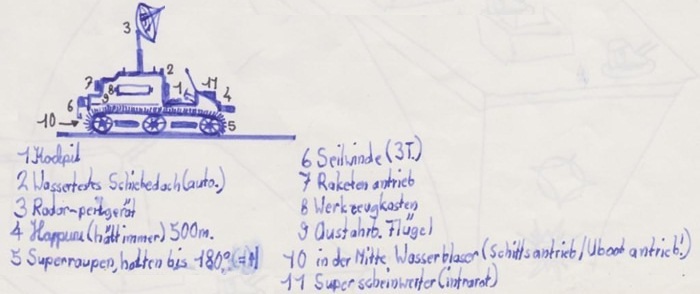 3
2
7
8
1
11
4
6
9
10
5
1 Kockpit
2 Wassertestes Schiebedach (auto.)
3 Radar-peilgerät
4 Happune (hält immer) 500m.
5 Superraupen, halten bis 180°
6 Seilwinde (3T.)
7 Raketenantrieb
8 Werkzeugkasten
9 Ausfahrb. Flügel
10 in der Mitte Wasserblaser (Schiffsantrieb/Uboot antrieb!)
11 Superscheinwerfer (infrarot)